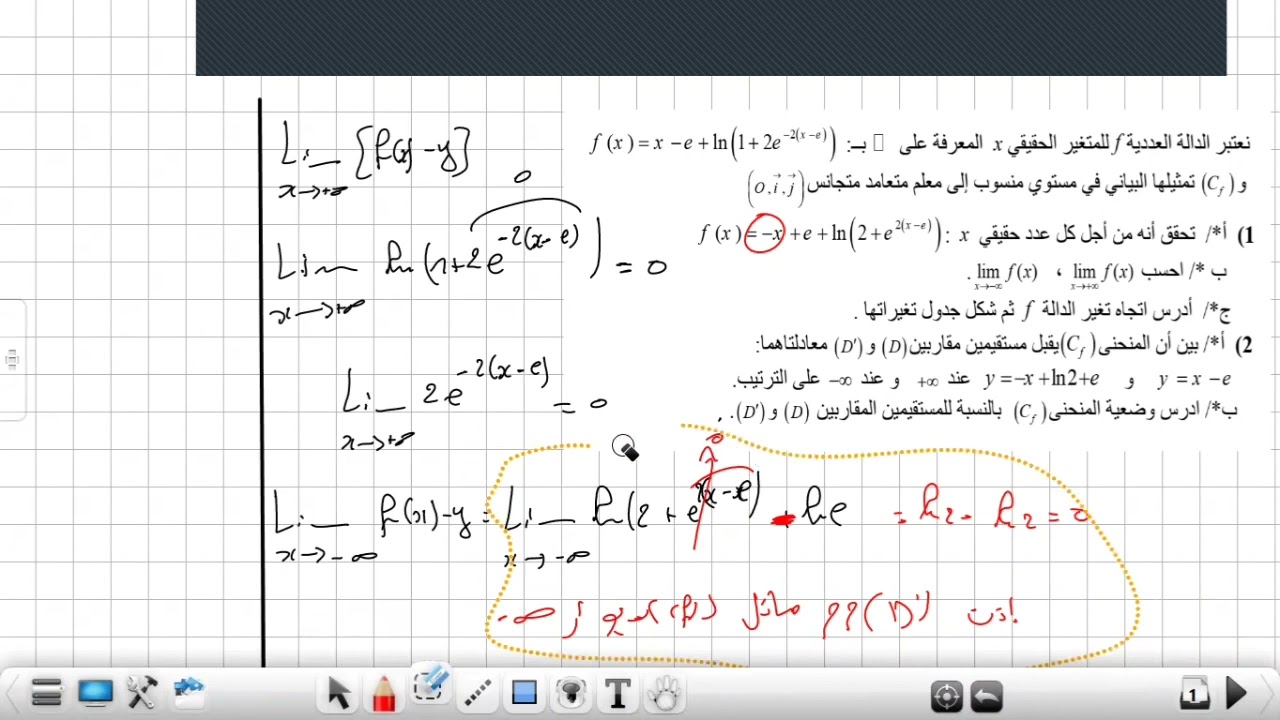 نعتبر الدالة العددية f للمتغير الحقيقي x المعرفة على □ بـ: f(x) = x − e + ln(1 + 2e^{−2(x−e)})
و (C_f) تمثيلها البياني في مستوي منسوب إلى معلم متعامد متجانس (O, i, j)
1) أ*/ تحقق أنه من أجل كل عدد حقيقي x : f(x) = −x + e + ln(2 + e^{2(x−e)})
ب */ احسب lim_{x→+∞} f(x) ، lim_{x→−∞} f(x) .
ج*/ أدرس اتجاه تغير الدالة f ثم شكل جدول تغيراتها .
2) أ*/ بين أن المنحنى (C_f) يقبل مستقيمين مقاربين (D) و (D') معادلتاهما:
y = x − e و y = −x + ln2 + e عند +∞ و عند −∞ على الترتيب.
ب*/ ادرس وضعية المنحنى (C_f) بالنسبة للمستقيمين المقاربين (D) و (D'). .
Lim_{x→+∞} [f(x) − y]
0
Lim_{x→+∞} ln(1 + 2e^{−2(x−e)}) = 0
Lim_{x→+∞} 2e^{−2(x−e)} = 0
0
Lim_{x→−∞} f(x) − y = Lim_{x→−∞} ln(2 + e^{2(x−e)}) = ln2 − ln2 = 0
(D') مائل −∞
1